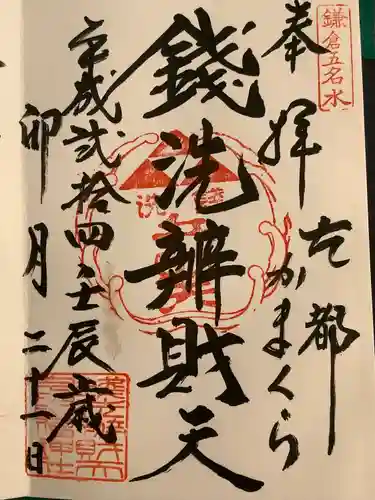 鎌倉五名水
奉拝
古都かまくら
銭洗辨財天
平成弐拾四壬辰歳
卯月二十一日